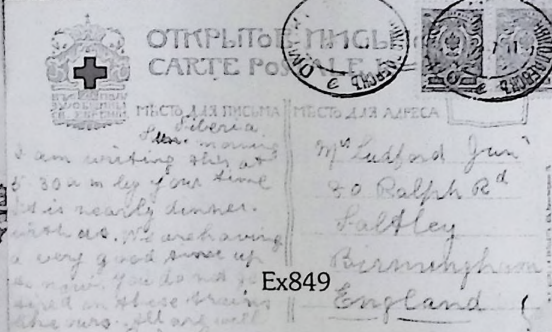 ОТКРЫТОЕ ПИСЬМО
CARTE POSTALE
МѢСТО ДЛЯ ПИСЬМА
МѢСТО ДЛЯ АДРЕСА
Siberia
Sun. morning
I am writing this at
5.30 a m by your time
It is nearly dinner.
with us. We are having
a very good time up
to now. You do not
on these trains
like ours. All are well
Mrs Ludford Junr
80 Ralph Rd
Saltley
Birmingham
England
Ex849